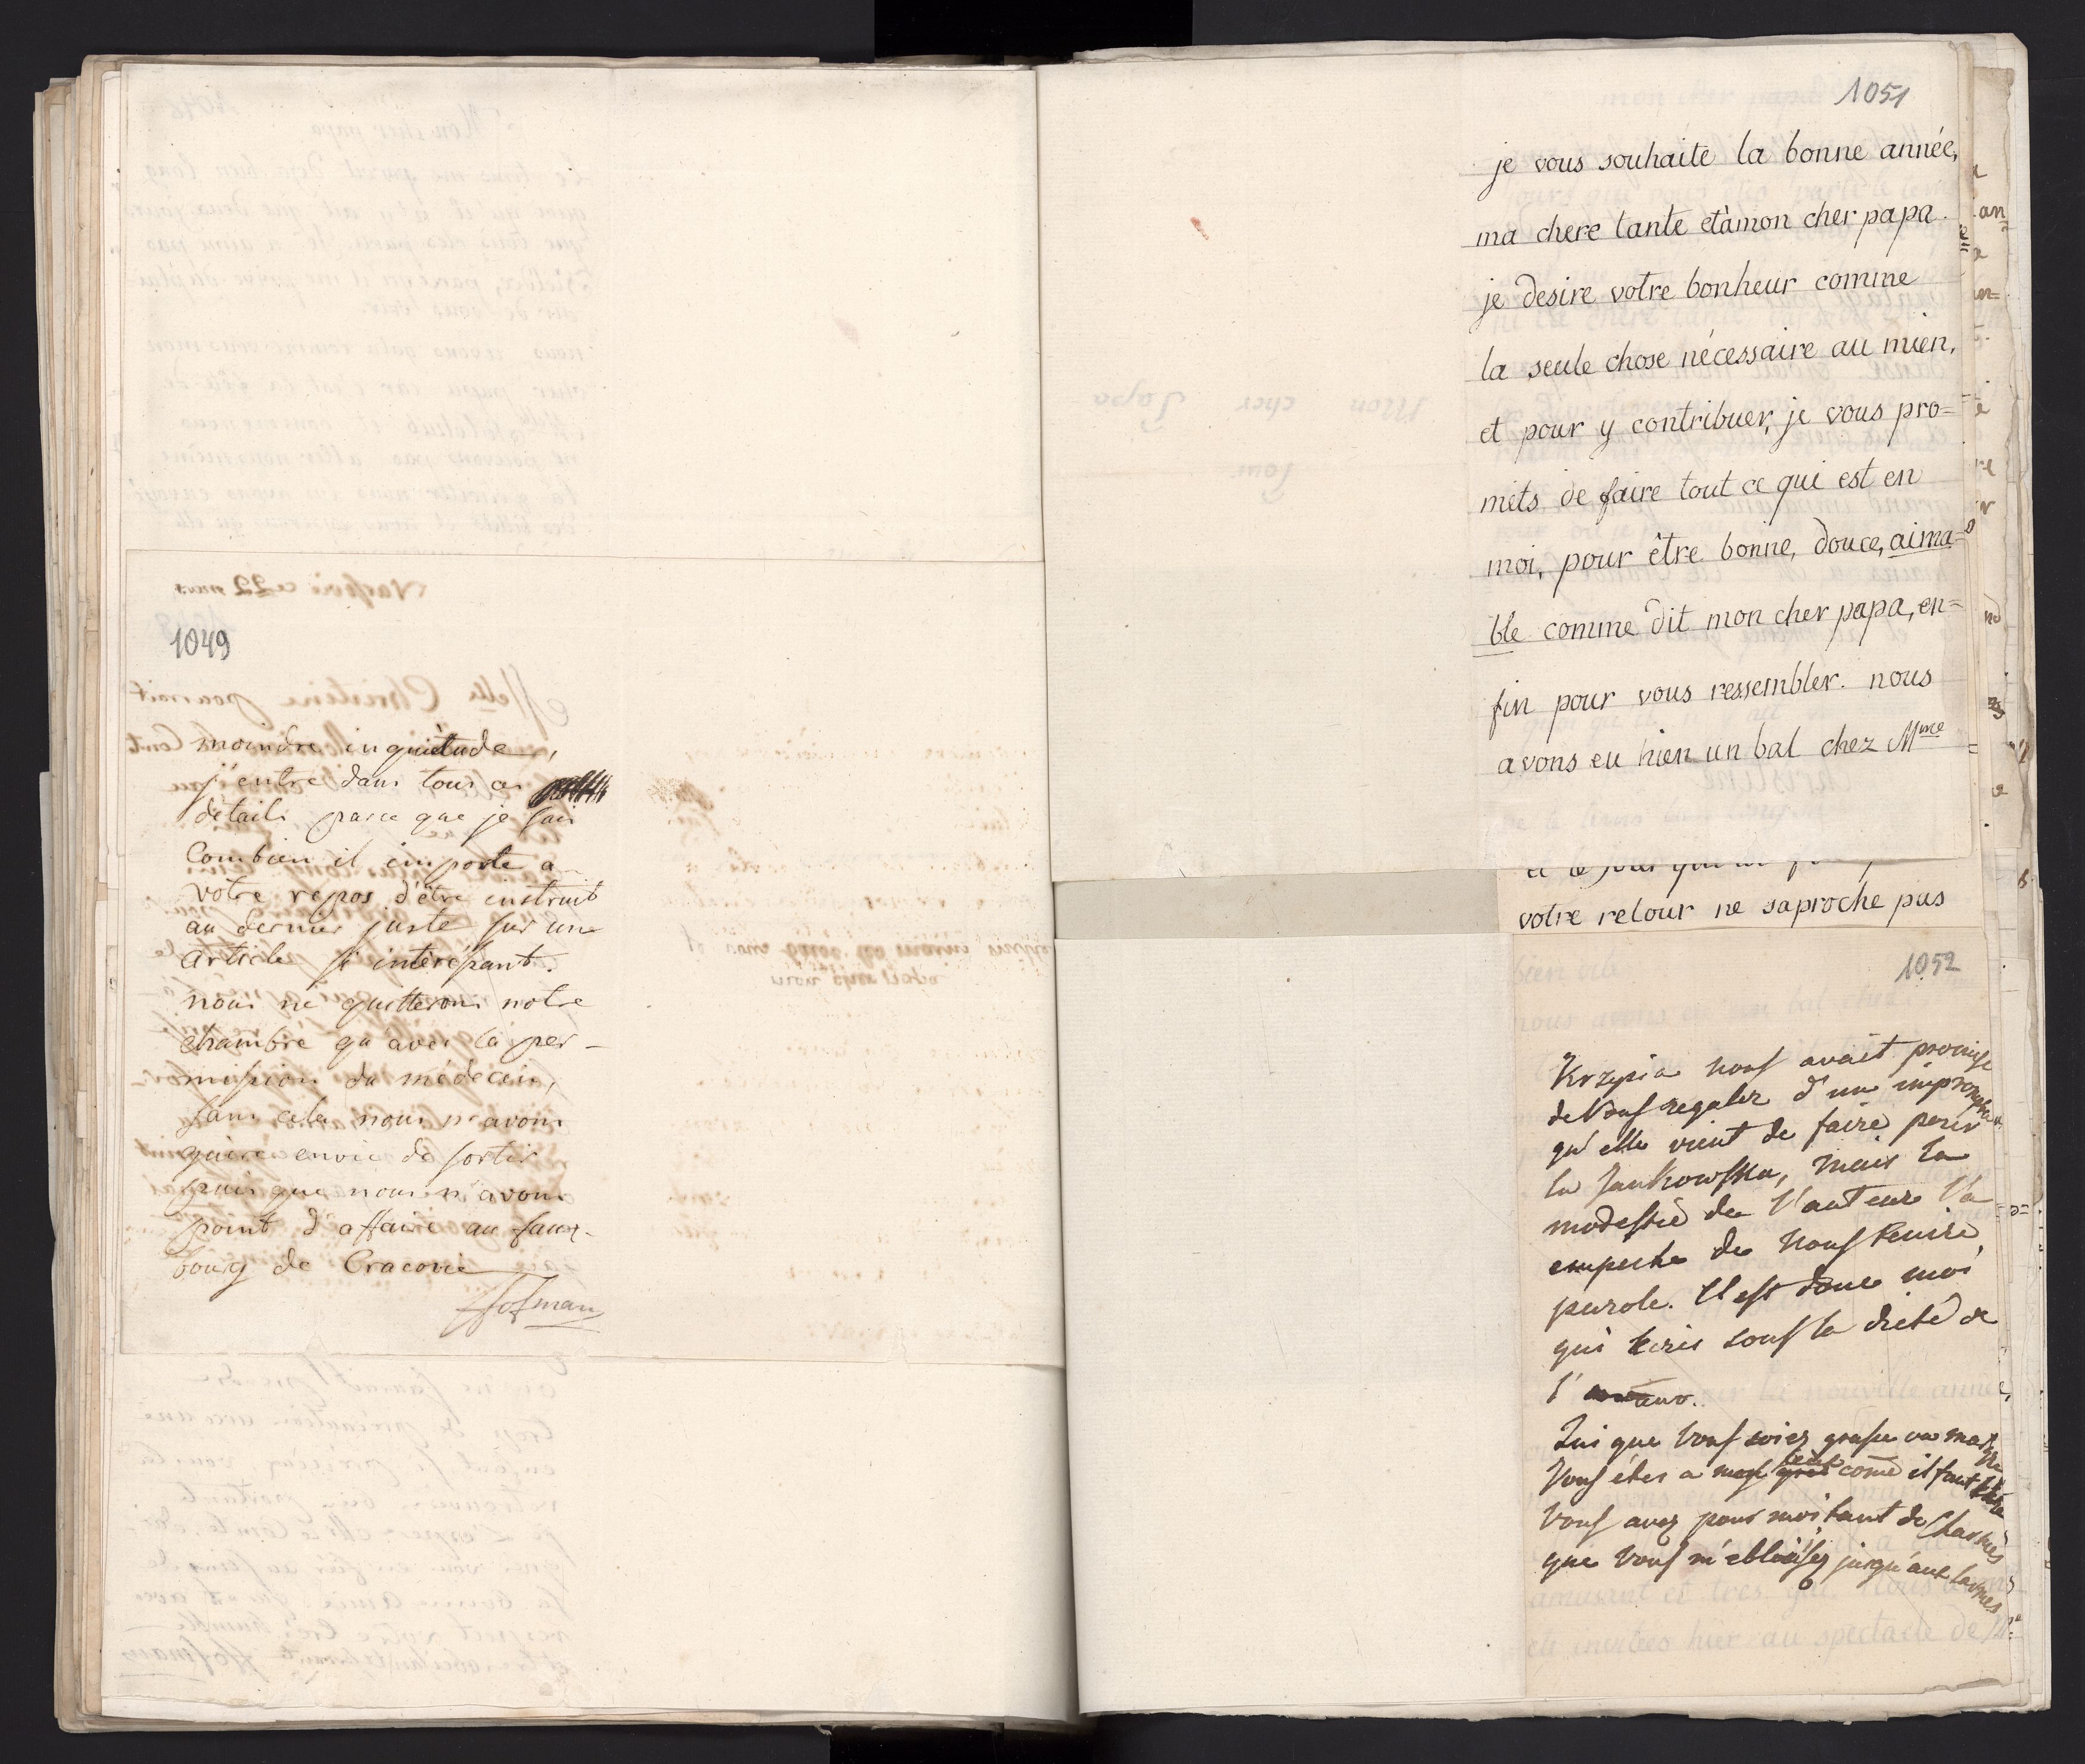 1049
moindre inquiétude,
j'entre dans tous ces
détails parce que je sais
Combien il importe a
votre repos d'être instruit
au dernier juste sur une
article si intéressant.
nous ne quitterons notre
chambre qu'avec la per-
mission du médecin,
sans cela nous n'avons
guère envie de sortir
puisque nous n'avons
point d'affaire au faux-
bourg de Cracovie
Hofman
1051
je vous souhaite la bonne année,
ma chere tante et à mon cher papa.
je desire votre bonheur comme
la seule chose nécessaire au mien,
et pour y contribuer, je vous pro=
mets de faire tout ce qui est en
moi, pour être bonne, douce, aima=
ble comme dit mon cher papa, en=
fin pour vous ressembler. nous
avons eu hier un bal chez Mme
votre retour ne saproche pas
1052
Krzysia nous avait promise
de Vous regaler d'un impromptu
qu'elle vient de faire pour
la Jankowska, mais la
modestie de l'auteur l'a
empeche de nous tenire
parole. Il est donc moi
qui ecris sous la dicté de
l'
Qui que Vous soiez grasse ou maigre
Vous étes a mes yeux come il faut être
Vous avez pour moi tant de Charmes
que Vous m'eblouisez jusqu'aux larmes